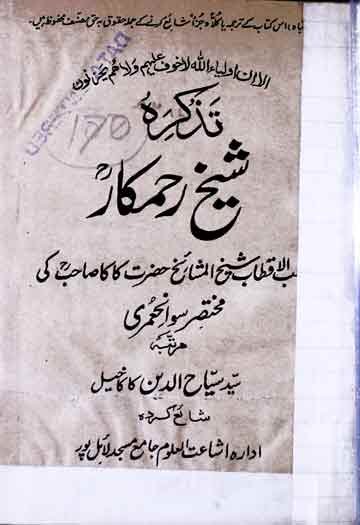 اس کتاب کے ترجمہ یا کلاً وجزاً شائع کرنے کے جملہ حقوق بحق مصنف محفوظ ہیں۔
الا ان اولیاء الله لا خوف علیهم ولا هم یحزنون
تذکرہ
شیخ رحمکارؒ
الاقطاب شیخ المشائخ حضرت کاکا صاحبؒ کی
مختصر سوانحعمری
مرتبہ
سید سیاح الدین کاکاخیل
شائع کردہ
ادارہ اشاعت العلوم جامع مسجد لائل پور
170